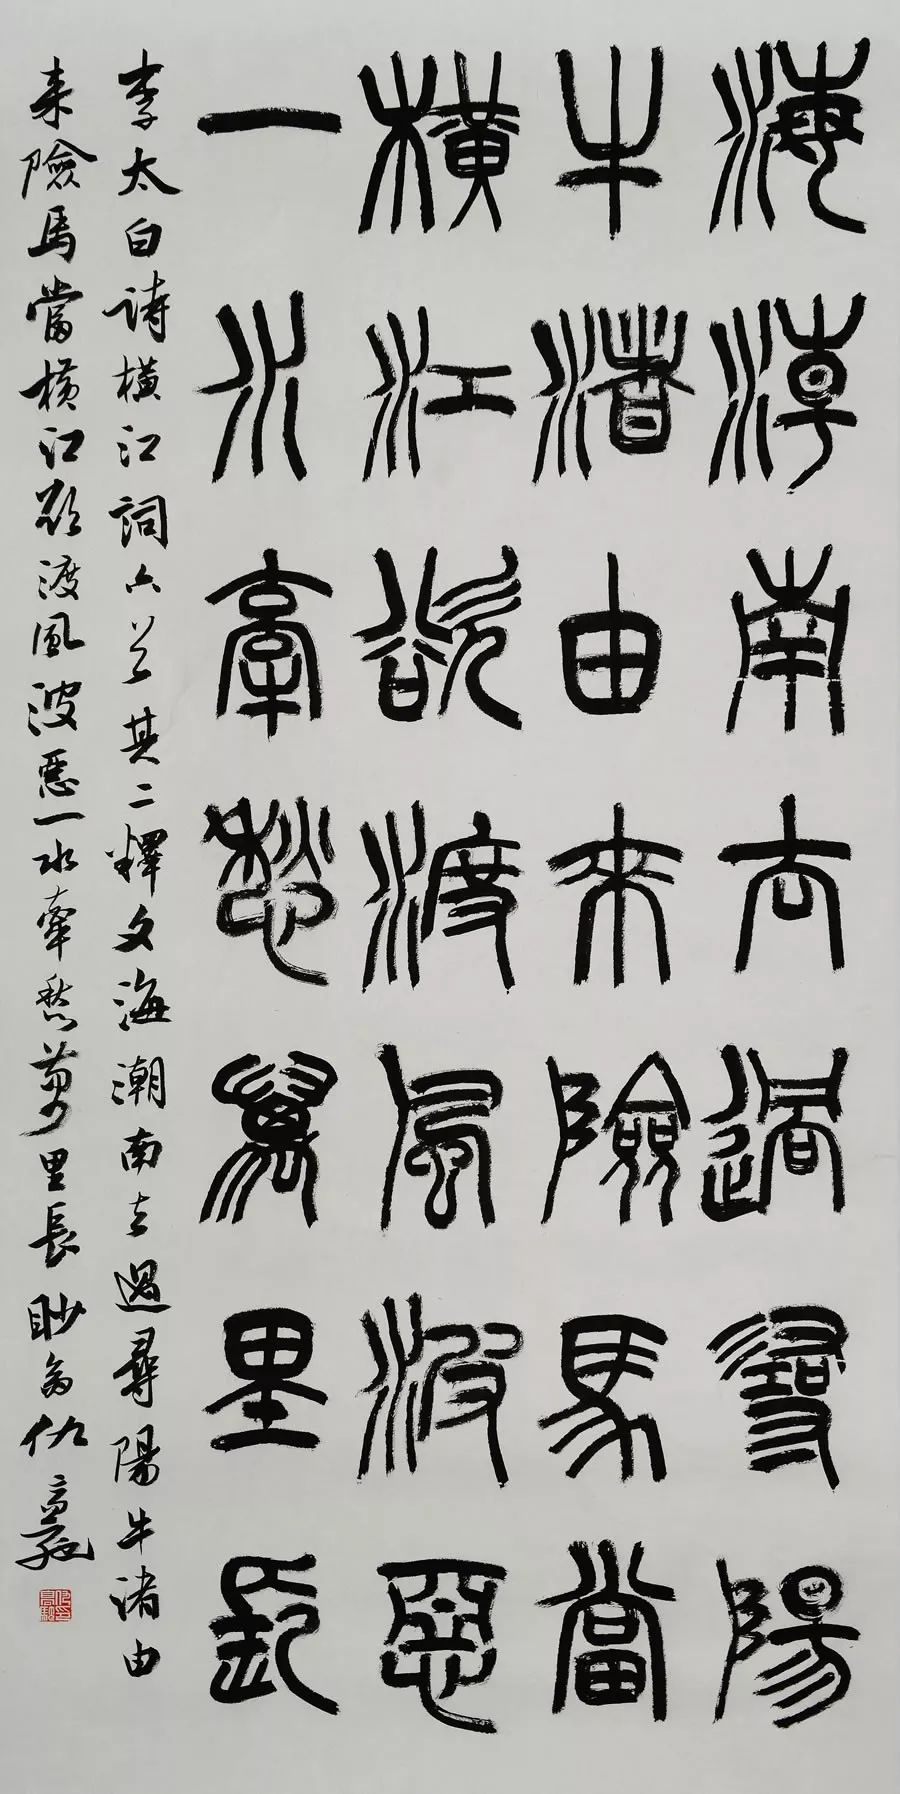 海潮南去過尋陽
牛渚由來險馬當
橫江欲渡風波惡
一水牽愁萬里長
李太白詩橫江詞六首其二釋文海潮南去過尋陽牛渚由
來險馬當橫江欲渡風波惡一水牽愁萬里長 眇翁仇高